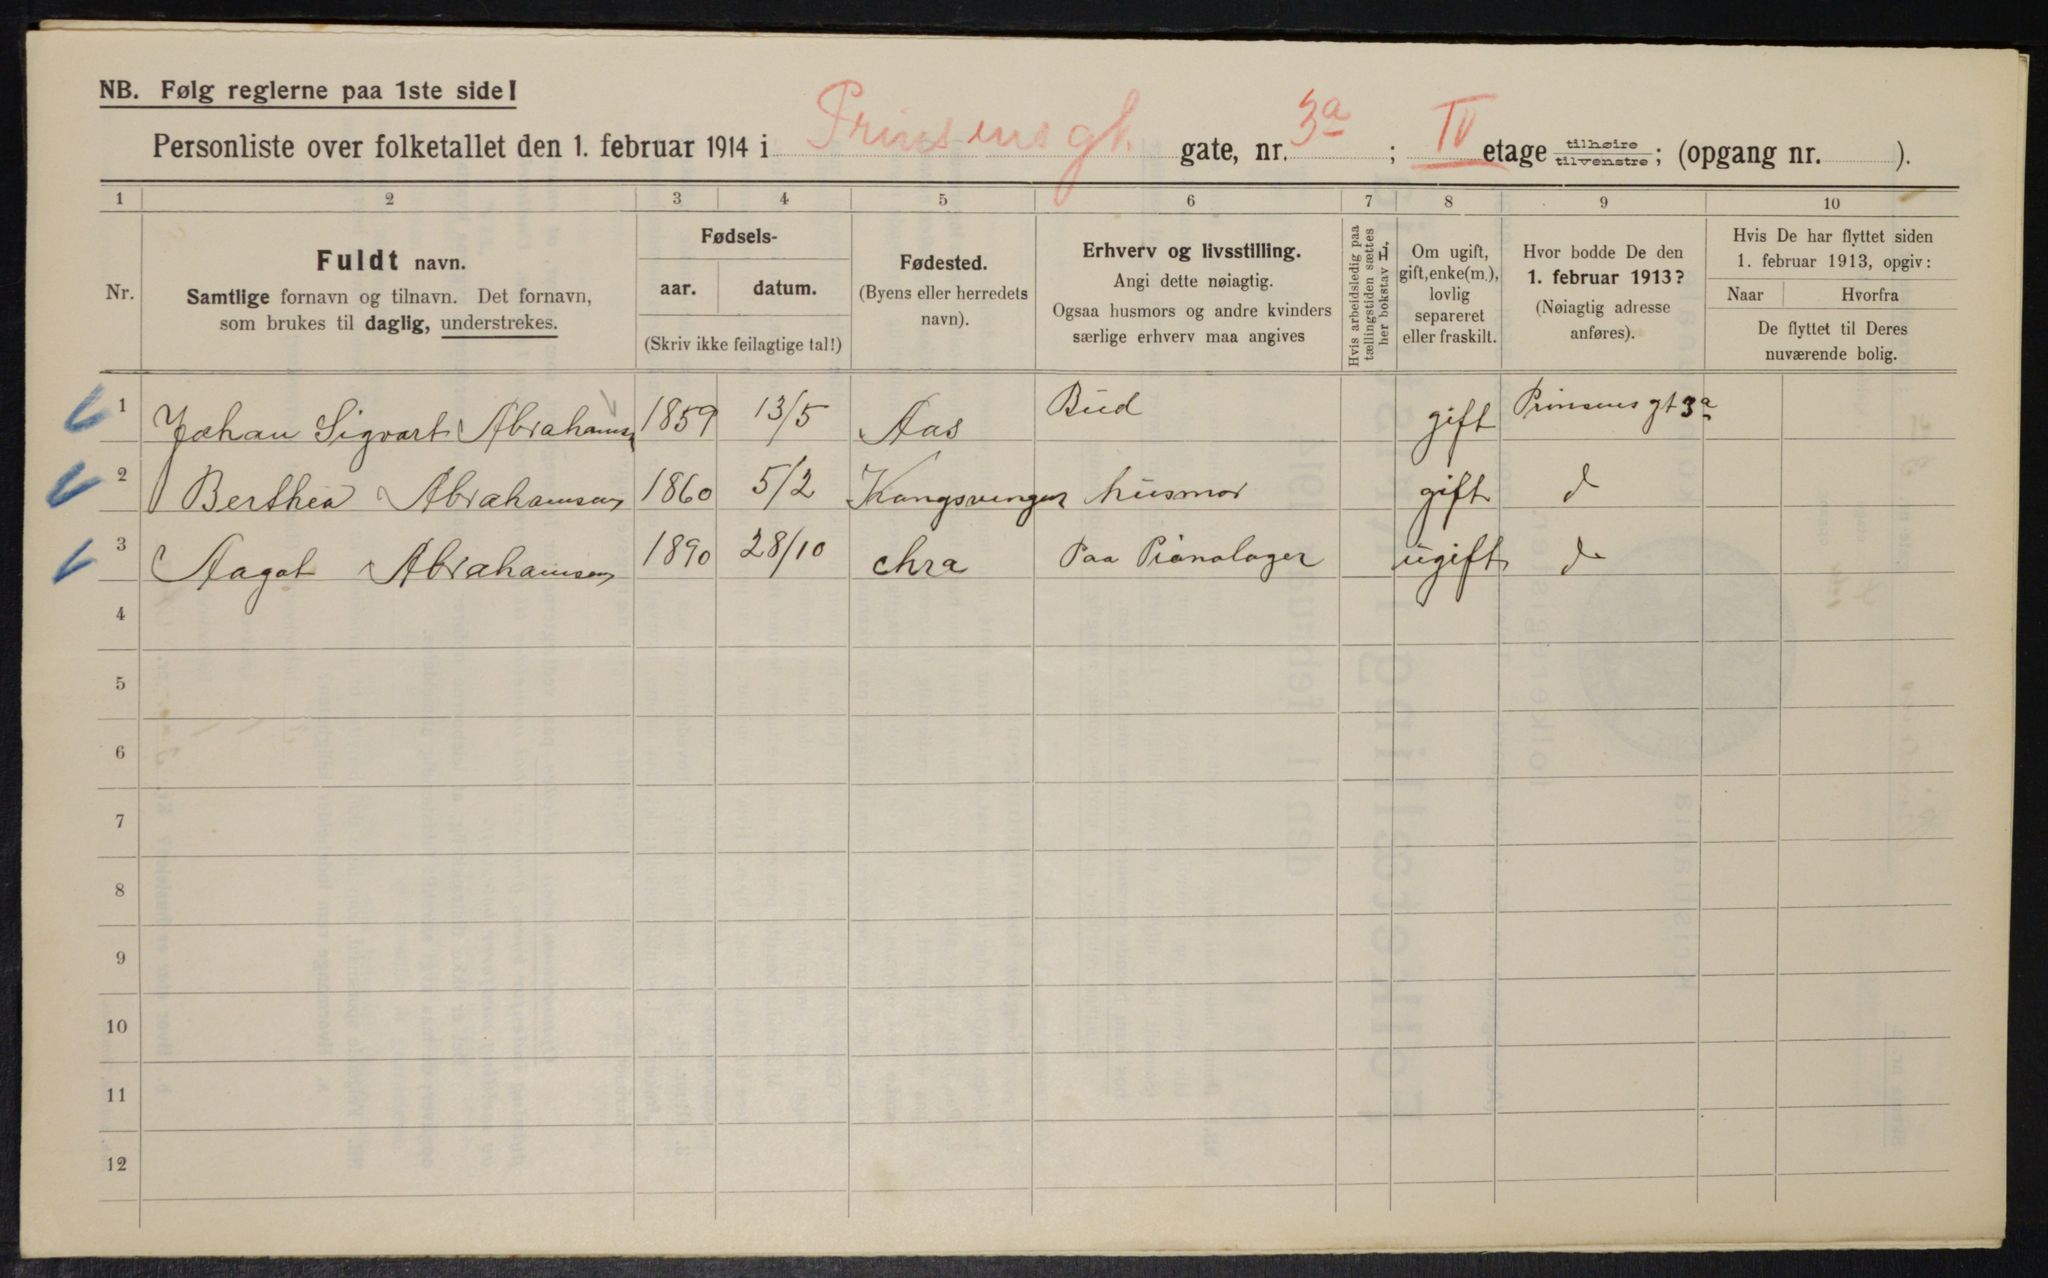 NB. Følg reglerne paa 1ste side!
Personliste over folketallet den 1. februar 1914 i Prinsens gt. gate, nr. 3a ; IV etage tilhøire tilvenstre ; (opgang nr. ).
1 2 3 4 5 6 7 8 9 10
Nr.
Fuldt navn.
Samtlige fornavn og tilnavn. Det fornavn,
som brukes til daglig, understrekes.
Fødsels-
aar. datum.
(Skriv ikke feilagtige tal!)
Fødested.
(Byens eller herredets
navn).
Erhverv og livsstilling.
Angi dette nøiagtig.
Ogsaa husmors og andre kvinders
særlige erhverv maa angives
Hvis arbeidsledig paa
tællingstiden sættes
her bokstav L.
Om ugift,
gift, enke(m.),
lovlig
separeret
eller fraskilt.
Hvor bodde De den
1. februar 1913?
(Nøiagtig adresse
anføres).
Hvis De har flyttet siden
1. februar 1913, opgiv:
Naar Hvorfra
De flyttet til Deres
nuværende bolig.
1 Johan Sigvart Abrahamsen 1859 13/5 Aas Bud gift Prinsens gt 3a
2 Berthea Abrahamsen 1860 5/2 Kongsvinger husmor gift d
3 Aagot Abrahamsen 1890 28/10 Chra Paa Pianolager ugift d
4
5
6
7
8
9
10
11
12